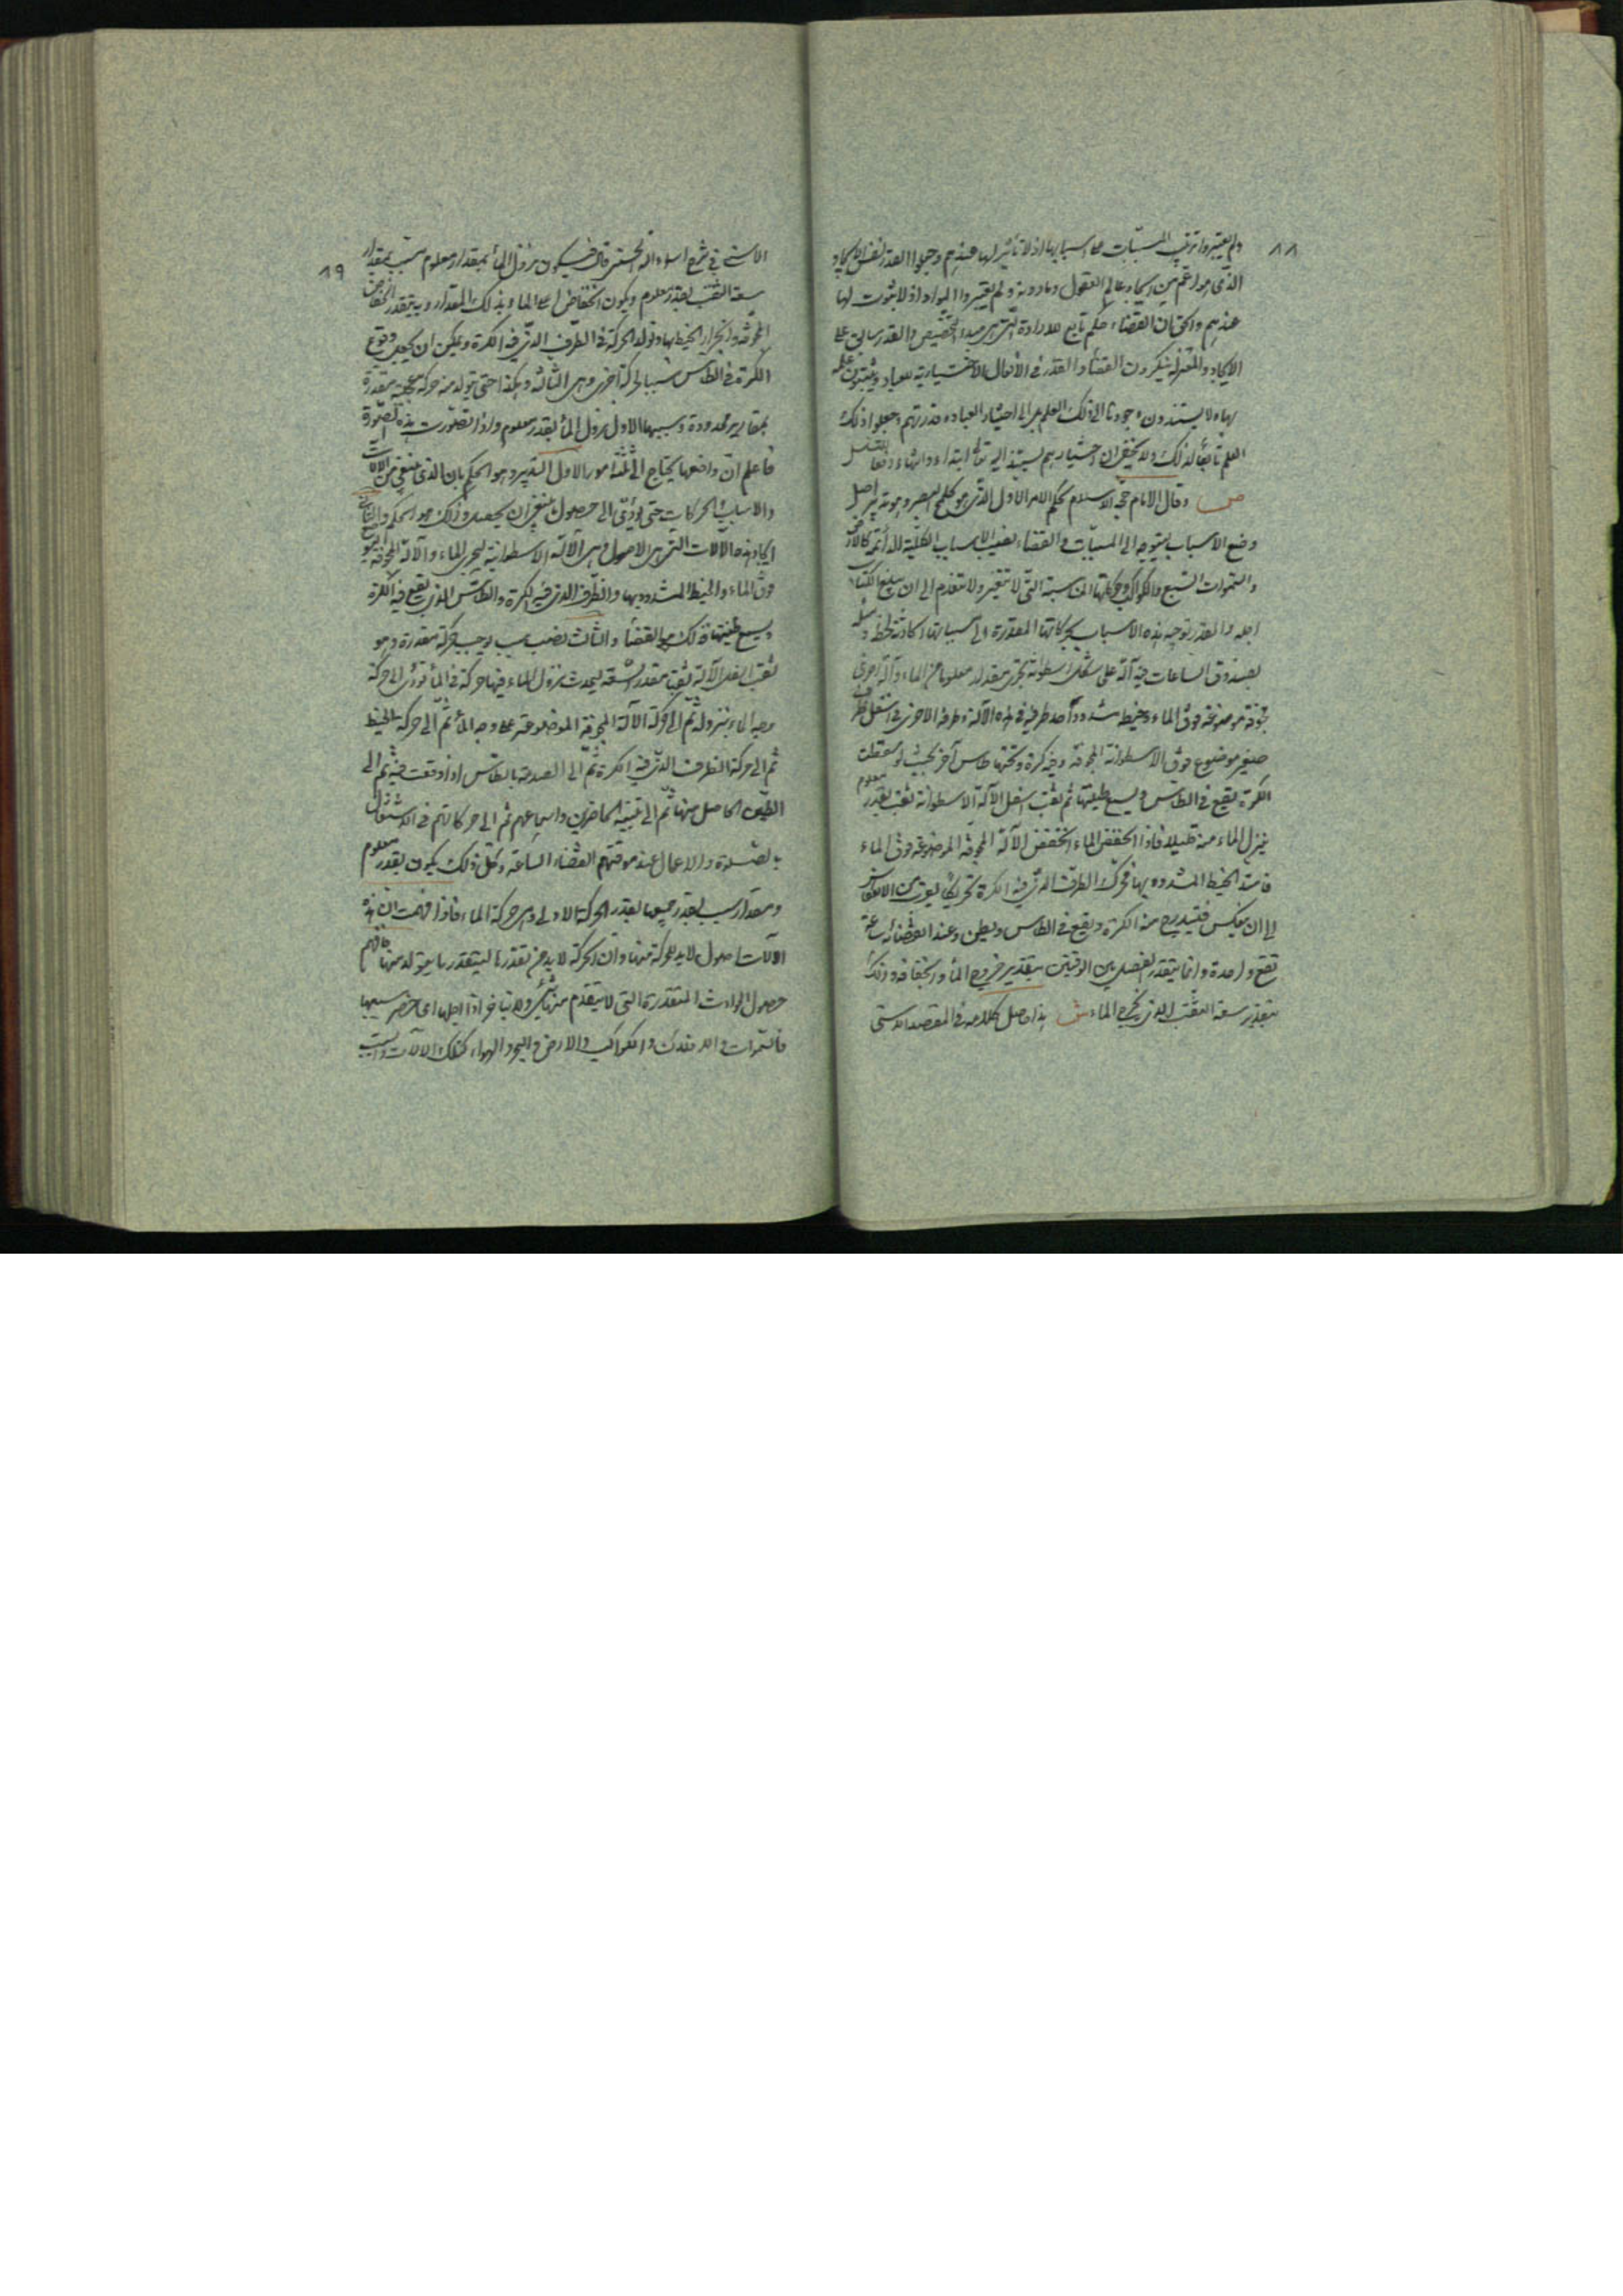 ٨٨
ولم يعتبروا ترتب المسببات على اسبابها اذ لا تأثير لها عندهم وجعلوا القدر نفس الايجاد
الذى هو اعم من ايجاد عالم العقول وما دونه ولم يعتبروا المواد اذ لا ثبوت لها
عندهم والحق ان القضاء حكم تابع للارادة التى هى مبدء التخصيص والقدر سابق على
الايجاد والمعتزلة ينكرون القضاء والقدر فى الأفعال الاختيارية للعباد ويثبتون علمه
بها ولا يسندون وجودها الى ذلك العلم بل الى اختيار العباد وقدرتهم وجعلوا ذلك
العلم تابعا لذلك ولا يخفى ان اختيارهم يستند اليه تعالى ابتداء وانتهاء دفعا للتسلسل
ص وقال الامام حجة الاسلام الحكم الامر الاول الذى هو كلمح البصر وهو تدبير اصل
وضع الاسباب ليتوجه الى المسببات والقضاء نصب الاسباب الكلية الدائمة كالارض
والسموات السبع والكواكب وحركاتها المناسبة التى لا تتغير ولا تنعدم الى ان يبلغ الكتاب
اجله والقدر توجيه هذه الاسباب بحركاتها المقدرة الى مسبباتها الحادثة لحظة ومثله
بصندوق الساعات فيه آلة على شكل اسطوانة تحوى مقدارا معلوما من الماء وآلة اخرى
مجوفة موضوعة فوق الماء وخيط مشدود احد طرفيه فى هذه الآلة وطرفه الاخر فى اسفل ظرف
صغير موضوع فوق الاسطوانة المجوفة وفيه كرة وتحتها طاس آخر بحيث لو سقطت
الكرة يقع فى الطاس ويسمع طنينها ثم ثقب اسفل الآلة الاسطوانة ثقب بقدر معلوم
ينزل الماء منه قليلا فاذا انخفض الماء انخفض الآلة المجوفة الموضوعة فوق الماء
فامتد الخيط المشدود بها فحرك الظرف الذى فيه الكرة تحريكا يقرب من الانتكاس
الى ان ينتكس فيتدحرج منه الكرة ويقع فى الطاس ويطن وعند انقضاء ساعة
تقع واحدة وانما يتقدر الفصل بين الوقتين بتقدير خروج الماء وانخفاضه وذلك
بتقدير سعة الثقب الذى يخرج الماء ش هذا حاصل كلامه فى المقصد الاسنى
٨٩
الاسنى فى شرح اسماء الله الحسنى قال فيكون نزول الماء بمقدار معلوم بسبب تقدير
سعة الثقب بقدر معلوم ويكون انخفاض اعلى الماء بذلك المقدار وبه يتقدر انخفاض
المجوفة وانجرار الخيط بها وتولد الحركة فى الظرف الذى فيه الكرة ويمكن ان يجعل وقوع
الكرة فى الطاس سببا لحركة اخرى وهى الثالثة وهكذا حتى يتولد منه حركة عجيبة مقدرة
بمقادير محدودة وسببها الاول نزول الماء بقدر معلوم واذا تصورت هذه الصورة
فاعلم ان واضعها يحتاج الى ثلثة امور الاول التدبير وهو الحكم بان الذى ينبغى من الآلات
والاسباب والحركات حتى يؤدى الى حصول ما ينبغى ان يحصل وذلك هو الحكم والثانى
ايجاد هذه الآلات التى هى الاصول وهى الآلة الاسطوانية ليحوى الماء والآلة المجوفة ليوضع
فوق الماء والخيط المشدود بها والظرف الذى فيه الكرة والطاس الذى يقع فيه الكرة
ويسمع طنينها وذلك هو القضاء والثالث نصب سبب يوجب حركة مقدرة وهو
ثقب اسفل الآلة ثقبا مقدر السعة ليحدث بنزول الماء فيها حركة فى الماء تؤدى الى حركة
وجه الماء بنزوله ثم الى حركة الآلة المجوفة الموضوعة على وجه الماء ثم الى حركة الخيط
ثم الى حركة الظرف الذى فيه الكرة ثم الى الصدمة بالطاس اذا وقعت فيه ثم الى
الطنين الحاصل منها ثم الى تنبيه الحاضرين واسماعهم ثم الى حركاتهم فى الاشتغال
بالصلوة والاعمال عند معرفتهم انقضاء الساعة وكل ذلك يكون بقدر معلوم
ومقدار بسبب تقدر جميعها بقدر الحركة الاولى وهى حركة الماء فاذا فهمت ان هذه
الآلات اصول لا بد للحركة منها وان الحركة لا بد من تقدرها ليتقدر ما يتولد منها فافهم
حصول الحوادث المقدرة التى لا يتقدم منها شئ ولا يتاخر اذا جاء اجلها اى حضر سببها
فالسموات والافلاك والكواكب والارض والبحر والهواء كتلك الآلات والسبب